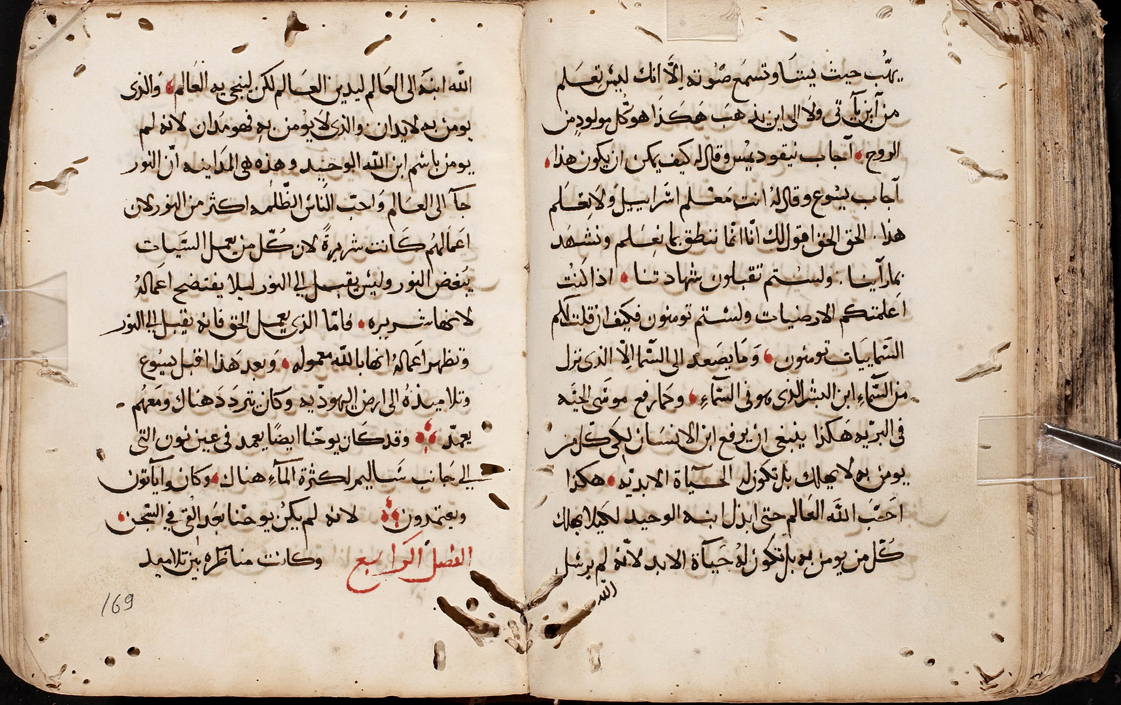 يهُب حيث يشا وتسمع صوته الا انك ليس تعلم
من اين ياتى ولا الى اين يذهب هكذا هو كل مولود من
الروح اجاب نيقوديمس وقال له كيف يمكن ان يكون هذا
اجاب يسوع وقال له انت معلم اسراييل ولا تعلم
هذا. الحق الحق اقول لك اننا انما ننطق بما نعلم ونشهد
بما راينا. ولستم تقبلون شهادتنا اذا كنت
اعلمتكم الارضيات ولستم تومنون فكيف ان قلت لكم
السمايیات تومنون وما يصعد الى السما الا الذى نزل
من السماء ابن البشر الذى هو فى السماء وكما رفع موسى الحيه
فى البريه هكذا ينبغى ان يرفع ابن الانسان لكى كل من
يومن به لا يهلك بل تكون له الحياة الابديه هكذا
احب الله العالم حتى ابذل ابنه الوحيد لكيلا يهلك
كل من يومن به بل تكون له حياة الابد لانه لم يرسل
الله
الله ابنه الى العالم ليدين العالم لكن لينجى به العالم والذى
يومن به لا يدان والذى لا يومن به فهو مدان لانه لم
يومن باسم ابن الله الوحيد وهذه هى المداينه ان النور
جآ الى العالم واحب الناس الظلمه اكثر من النور لان
اعمالهم كانت شريرة لان كل من يعمل السيات
يبغض النور وليس يقبل الى النور ليلا يفتضح اعماله
لانها شريره فاما الذى يعمل الحق فانه يقبل الى النور
وتظهر اعماله انها بالله معموله وبعد هذا اقبل يسوع
وتلاميذه الى ارض اليهوديه وكان يتردد هناك ومعهم
يعمد وقد كان يوحنا ايضا يعمد فى عين نون التى
الى جانب ساليم لكثرة المآء هناك وكانوا ياتون
ويعتمدون لانه لم يكن يوحنا بعد القى فى السجن
الفصل الرابع وكانت مناظره بين تلاميد
169